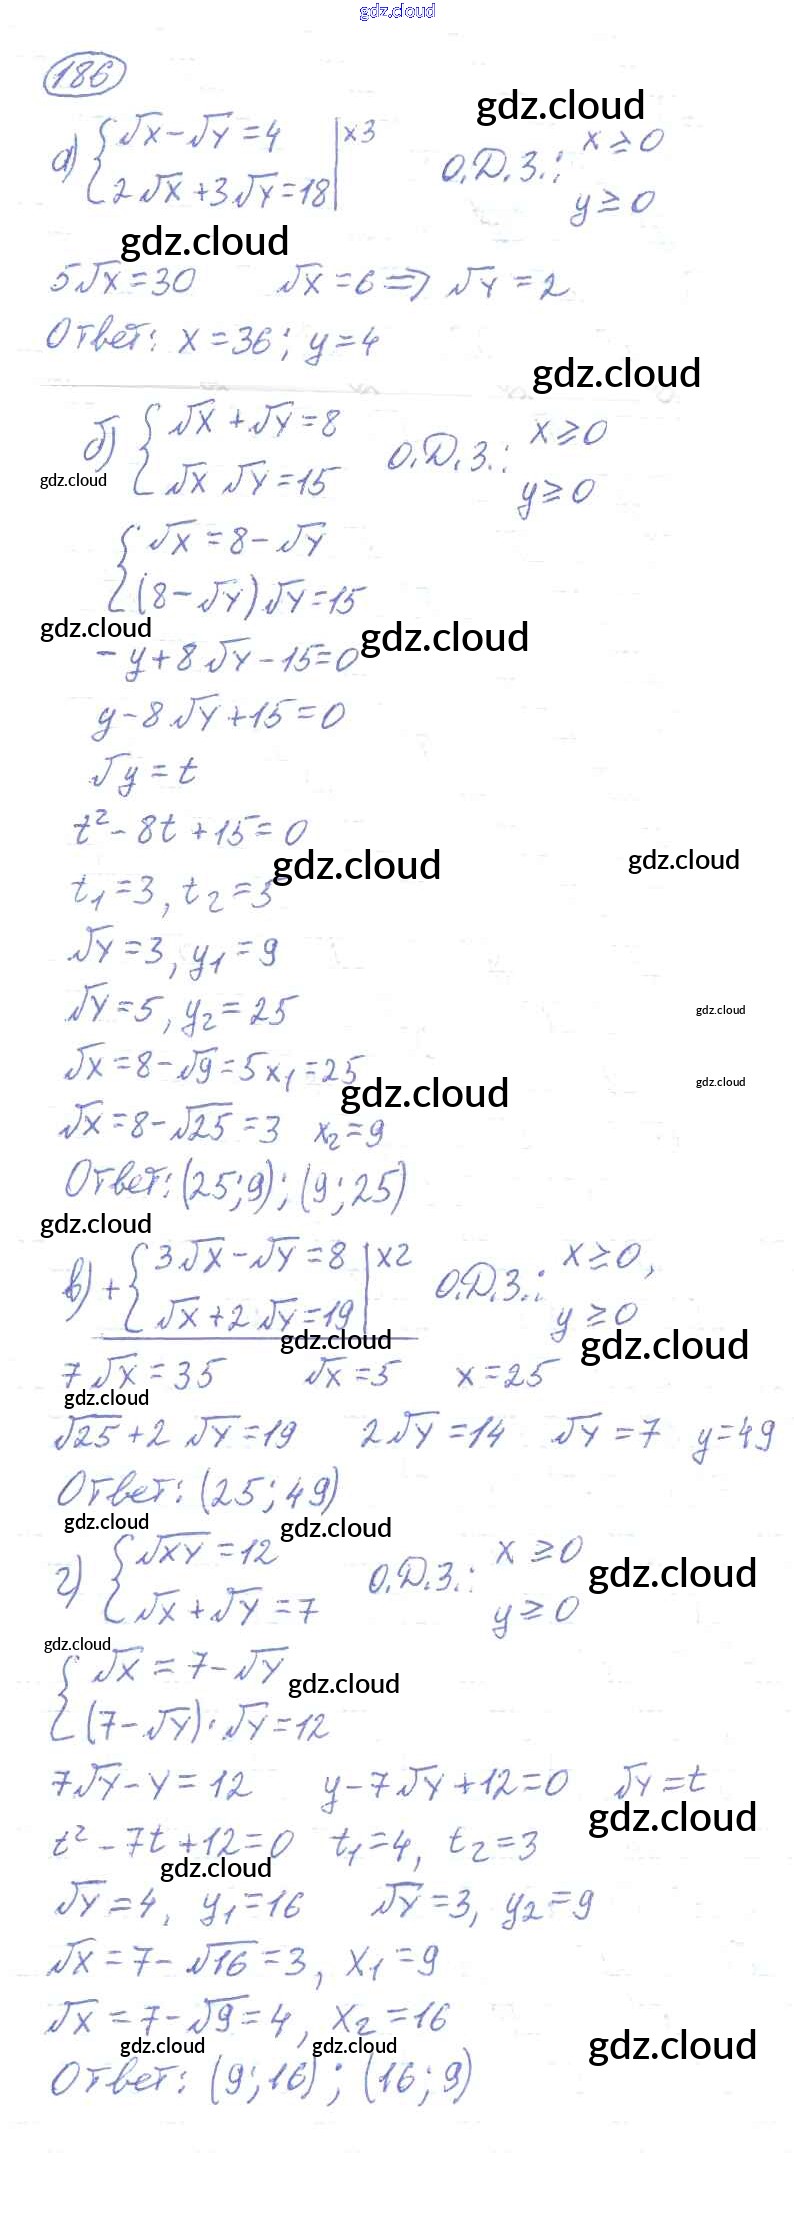 gdz.cloud
186
gdz.cloud
а) {√x − √y = 4 | x3
2√x + 3√y = 18 О.Д.З.: x ≥ 0
y ≥ 0
gdz.cloud
5√x = 30 √x = 6 ⇒ √y = 2
Ответ: x = 36; y = 4
gdz.cloud
б) {√x + √y = 8 О.Д.З.: x ≥ 0
√x √y = 15 y ≥ 0
gdz.cloud
{√x = 8 − √y
(8 − √y)√y = 15
gdz.cloud gdz.cloud
−y + 8√y − 15 = 0
y − 8√y + 15 = 0
√y = t
t² − 8t + 15 = 0
gdz.cloud gdz.cloud
t₁ = 3, t₂ = 5
√y = 3, y₁ = 9
√y = 5, y₂ = 25
gdz.cloud
√x = 8 − √9 = 5 x₁ = 25
gdz.cloud gdz.cloud
√x = 8 − √25 = 3 x₂ = 9
Ответ: (25; 9); (9; 25)
gdz.cloud
в) + {3√x − √y = 8 | x2 О.Д.З.: x ≥ 0,
√x + 2√y = 19 y ≥ 0
gdz.cloud gdz.cloud
7√x = 35 √x = 5 x = 25
gdz.cloud
√25 + 2√y = 19 2√y = 14 √y = 7 y = 49
Ответ: (25; 49)
gdz.cloud gdz.cloud
г) {√xy = 12 О.Д.З.: x ≥ 0
√x + √y = 7 y ≥ 0
gdz.cloud
gdz.cloud
{√x = 7 − √y
gdz.cloud
(7 − √y) · √y = 12
7√y − y = 12 y − 7√y + 12 = 0 √y = t
gdz.cloud
t² − 7t + 12 = 0 t₁ = 4, t₂ = 3
gdz.cloud
√y = 4, y₁ = 16 √y = 3, y₂ = 9
√x = 7 − √16 = 3, x₁ = 9
√x = 7 − √9 = 4, x₂ = 16
gdz.cloud gdz.cloud gdz.cloud
Ответ: (9; 16); (16; 9)